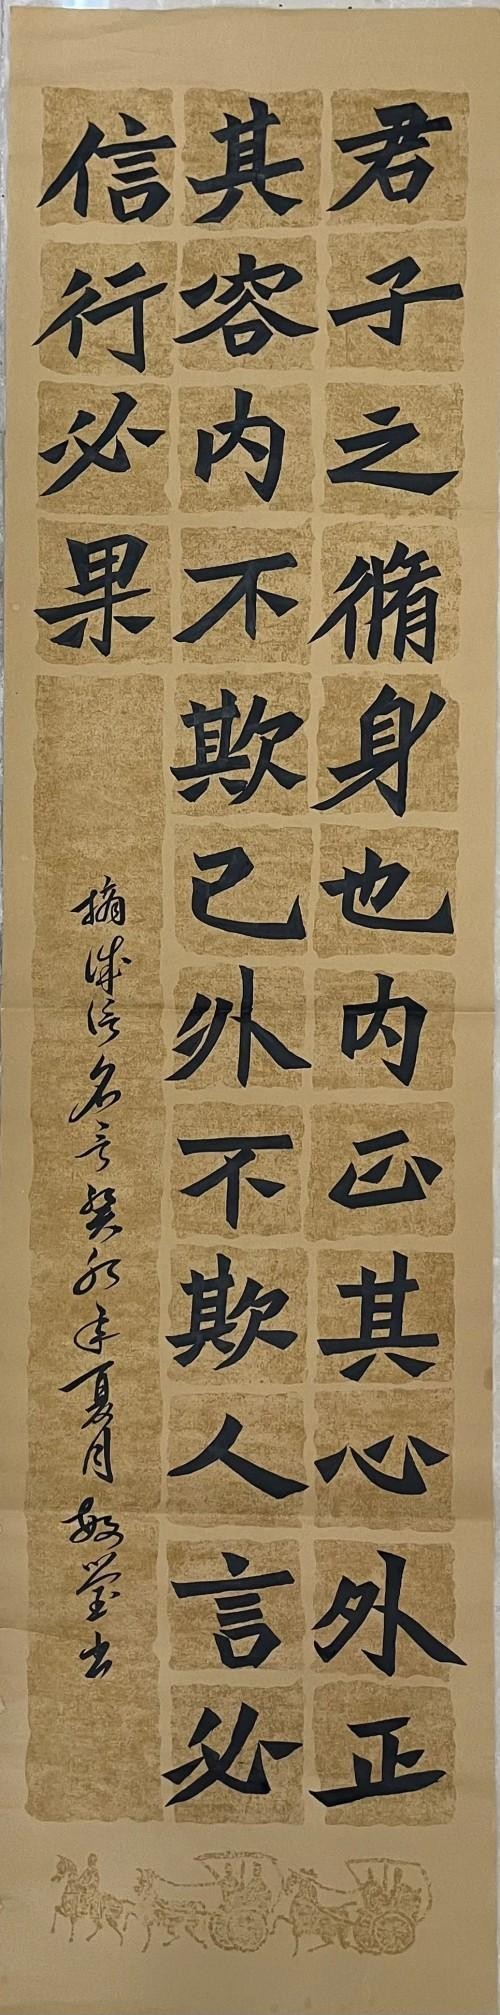 君子之脩身也内正其心外正
其容内不欺己外不欺人言必
信行必果
摘诚信名言癸卯年夏月敏莹书